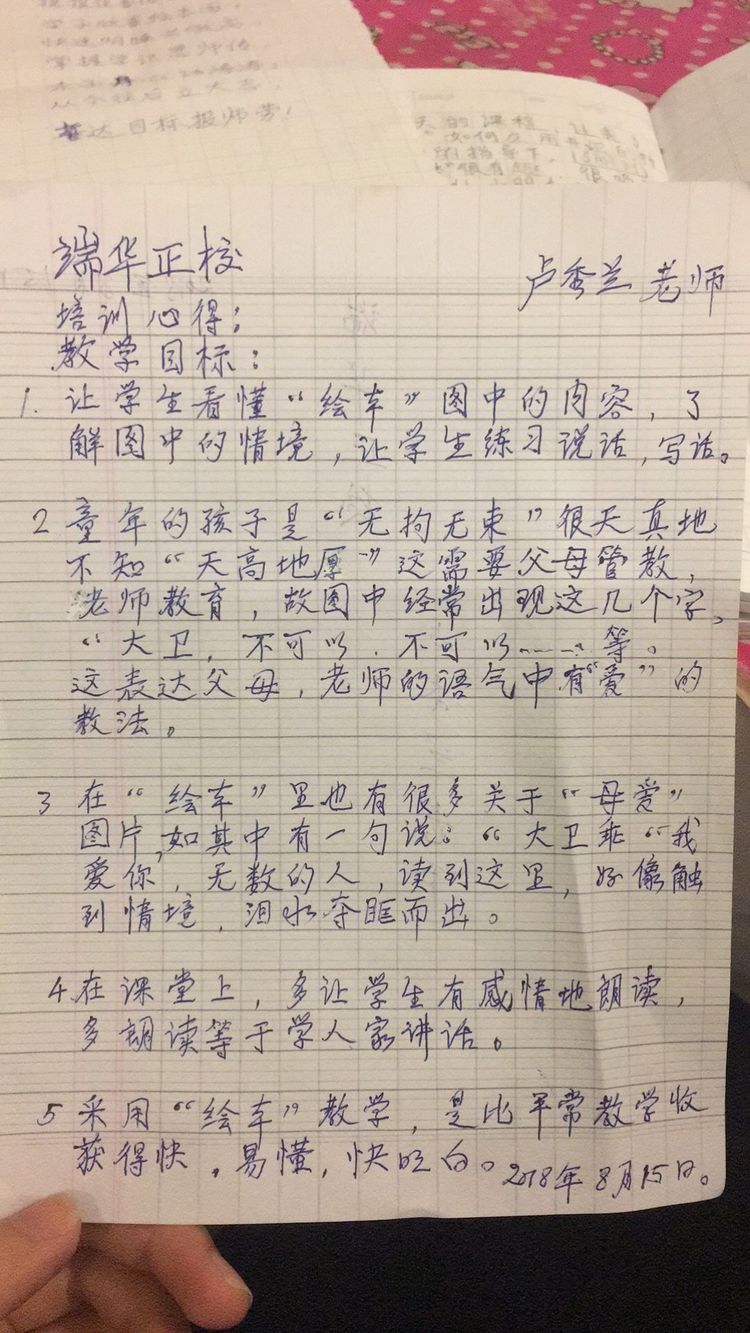 达目标、报师劳!
端华正校
卢秀兰老师
培训心得:
教学目标:
1. 让学生看懂“绘车”图中的内容,了
解图中的情境,让学生练习说话,写话。
2 童年的孩子是“无拘无束”很天真地
不知“天高地厚”这需要父母管教,
老师教育,故图中经常出现这几个字,
“大卫,不可以.不可以……等。
这表达父母,老师的语气中有“爱”的
教法。
3 在“绘车”里也有很多关于“母爱”
图片,如其中有一句说:“大卫乖“我
爱你,无数的人,读到这里,好像触
到情境,泪水夺眶而出。
4.在课堂上,多让学生有感情地朗读,
多朗读等于学人家讲话。
5 采用“绘车”教学,是比平常教学收
获得快,易懂,快明白。2018年8月15日。